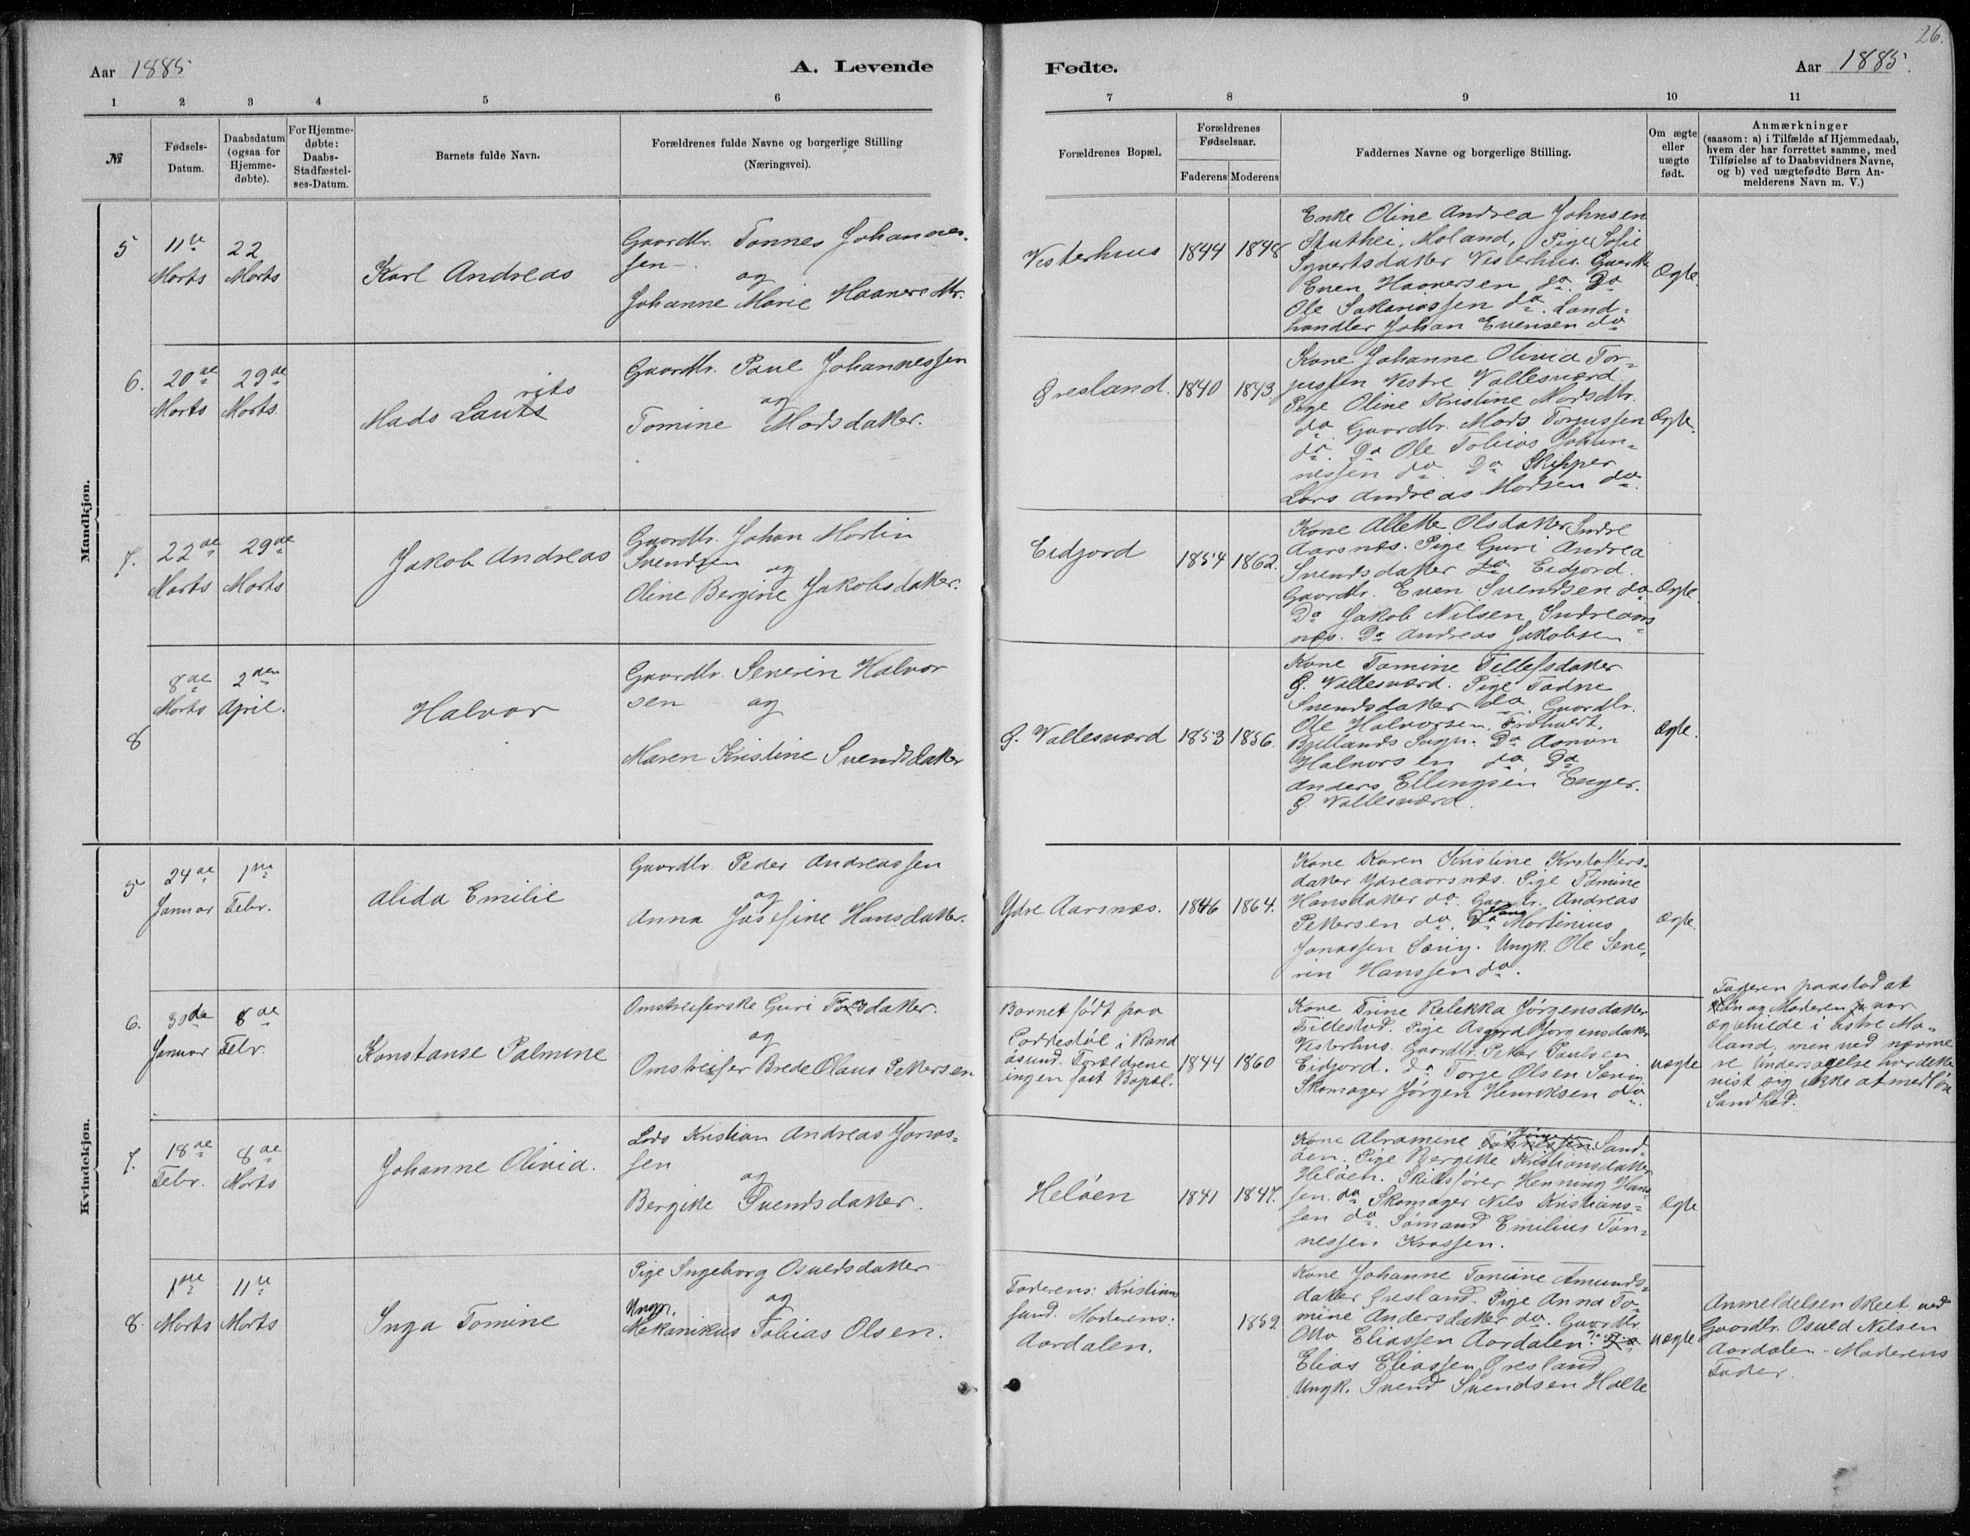 26.
Aar 1885
A. Levende
Fødte.
Aar 1885.
1 2 3 4 5 6 7 8 9 10 11
№
Fødsels-
Datum.
Daabsdatum
(ogsaa for
Hjemme-
døbte).
For Hjemme-
døbte:
Daabs-
Stadfæstel-
ses-Datum.
Barnets fulde Navn.
Forældrenes fulde Navne og borgerlige Stilling
(Næringsvei).
Forældrenes Bopæl.
Forældrenes
Fødselsaar.
Faderens Moderens
Faddernes Navne og borgerlige Stilling.
Om ægte
eller
uægte
født.
Anmærkninger
(saasom: a) i Tilfælde af Hjemmedaab,
hvem der har forrettet samme, med
Tilføielse af to Daabsvidners Navne,
og b) ved uægtefødte Børn An-
melderens Navn m. V.)
Mandkjøn.
5
11te
Marts
22
Marts
Karl Andreas
Gaardbr. Tønnes Johannes-
sen
og
Johanne Marie Haaversdtr.
Visterhus
1844 1848
Enke Oline Andrea Johnsen
Stuthei, Moland, Pige Sofie
Syvertsdatter Visterhus. Gaardbr.
Even Haaversen do. Do
Ole Sakariassen do. Land-
handler Johan Evensen do
Ægte.
6.
20de
Marts
29de
Marts.
Mads Laurits
Gaardbr. Paul Johannessen
og
Tomine Madsdatter.
Øresland.
1840 1843
Kone Johanne Olivia Tor-
jussen Vestre Vallesværd.
Pige Oline Kristine Madsdtr.
do Gaardbr. Mads Torjussen
do. Do Ole Tobias Johan-
nessen do. Do Skipper
Lars Andreas Madsen do.
Ægte.
7.
22de
Marts
29de
Marts
Jakob Andreas
Gaardbr. Johan Martin
Svendsen og
Oline Bergine Jakobsdatter.
Eidjord
1854 1862.
Kone Allette Olsdatter Indre
Aarsnæs. Pige Guri Andrea
Svendsdatter do Eidjord.
Gaardbr. Even Svendsen do
Do Jakob Nilsen Indreaars-
næs. Do Andreas Jakobsen
Ægte.
8
8de
Marts
2den
April.
Halvor
Gaardbr. Severin Halvor
sen og
Maren Kristine Svendsdatter
Ø. Vallesværd
1853 1856.
Kone Tomine Tellefsdatter
Ø. Vallesværd. Pige Tadne
Svendsdatter do. Gaardbr.
Ole Halvorsen
Bjellands Sogn. Do Aanon
Halvorsen do. Do
Anders Ellingsen Enger.
Ø. Vallesværd.
Ægte.
Kvindekjøn.
5
24de
Januar
1ste
Febr.
Alida Emilie
Gaardbr. Peder Andreassen
og
Anna Josefine Hansdatter.
Ydre Aarsnæs.
1846 1864.
Kone Karen Kristine Kristoffers-
datter Ydreaarsnæs. Pige Tomine
Hansdatter do. Gaardbr. Andreas
Pettersen do. Do Hans Martinius
Jonassen Sæng. Ungk. Ole Seve-
rin Hanssen do.
Ægte.
6.
30de
Januar
8de
Febr.
Konstanse Palmine
Omstreiferske Guri Torsdatter.
og
Omstreifer Brede Olaus Pettersen
Barnet født paa
Dorrestøl i Rand
øsund. Forældrene
ingen fast Bopæl.
1844 1860
Kone Trine Rebekka Jørgensdatter
Tillestad. Pige Asgerd Bjørgensdatter
Visterhus. Gaardbr. Petter Paulsen
Eidjord. do Torge Olsen Sæng
Skomager Jørgen Henriksen do.
uægte
Faderen paastod at
han og Moderen var
ægteviede i østre Mo-
land, men ved nærme
re Undersøgelse har dette
vist sig ikke at medføre
Sandhed.
7.
18de
Febr.
8de
Marts
Johanne Olivia.
Lods Kristian Andreas Jonas-
sen
og
Bergitte Svendsdatter.
Heløen
1841 1847.
Kone Abramine Sand-
øen. Pige Bergitte Kristiansdatter
Heløen. Skibsfører Henning Hans-
sen do Skomager Nils Kristians-
sen do. Sømand Emilius Tøn-
nessen Krossen.
Ægte
8.
1ste
Marts
11te
Marts
Inga Tomine
Pige Ingeborg Osuldsdatter
og
Ungm.
Mekanikus Tobias Olsen.
Faderens: Kristian
sund. Moderens:
Aardalen.
1859.
Kone Johanne Tomine Amunds-
datter Øresland. Pige Anna To-
mine Andersdatter do. Gaardbr.
Otto Eliassen Aardalen. Do
Elias Eliassen Øresland
Ungk. Svend Svendsen Holte
uægte
Anmeldelsen skeet ved
Gaardbr. Osuld Nilsen
Aardalen. Moderens
Fader.